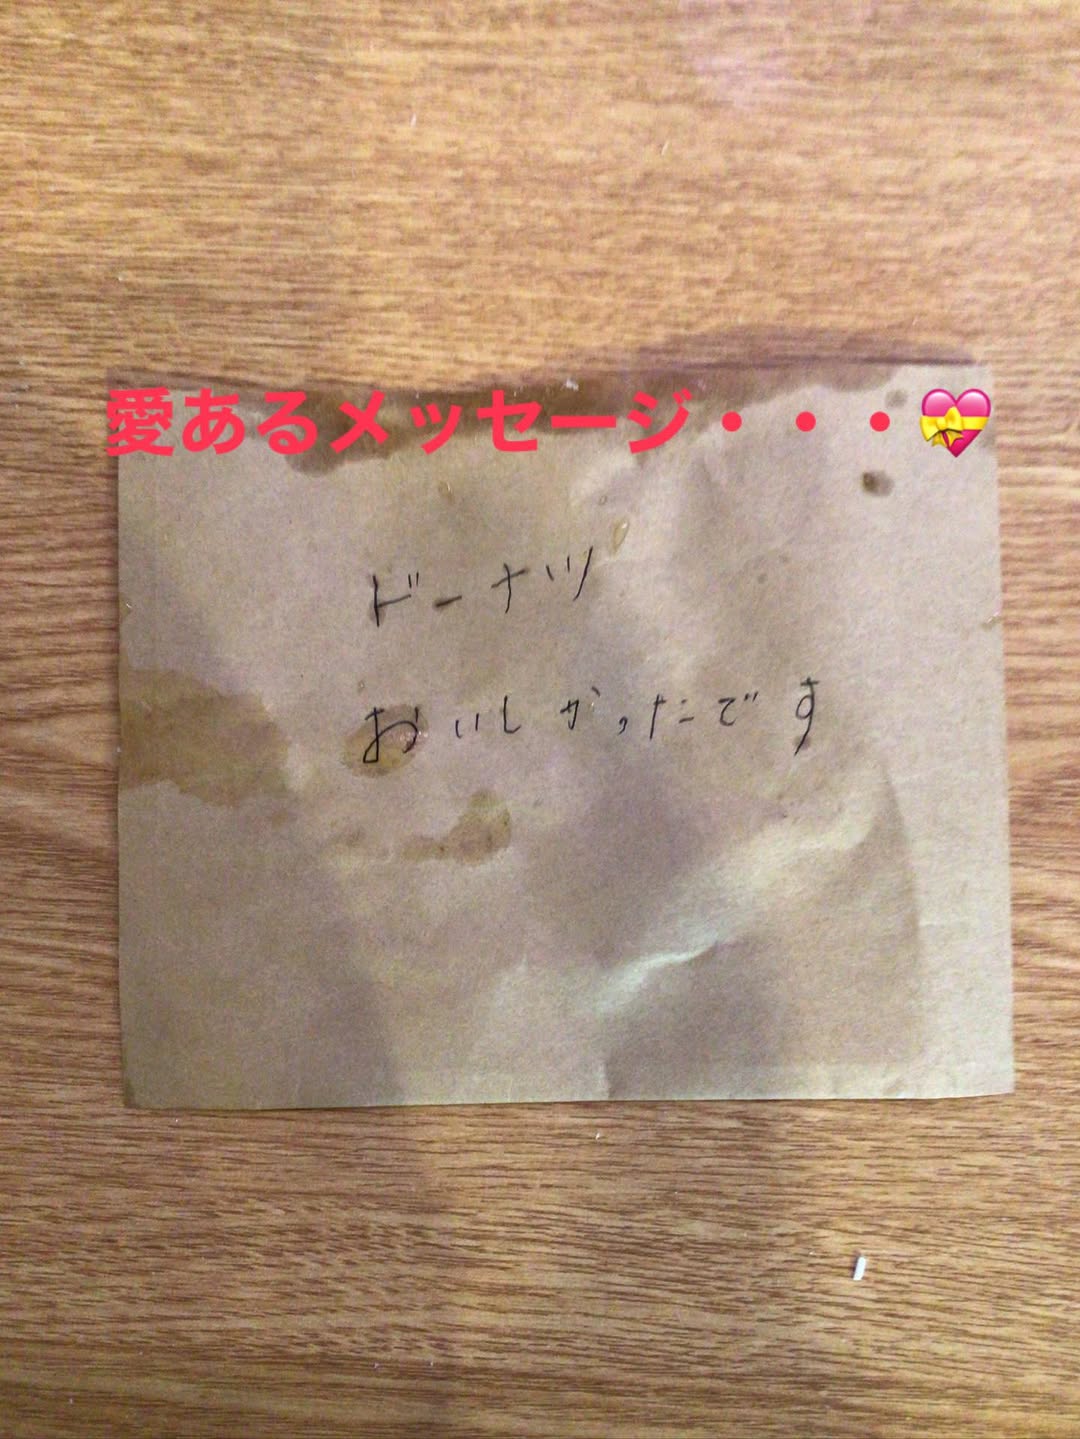 愛あるメッセージ・・・💝
ドーナツ
おいしかったです